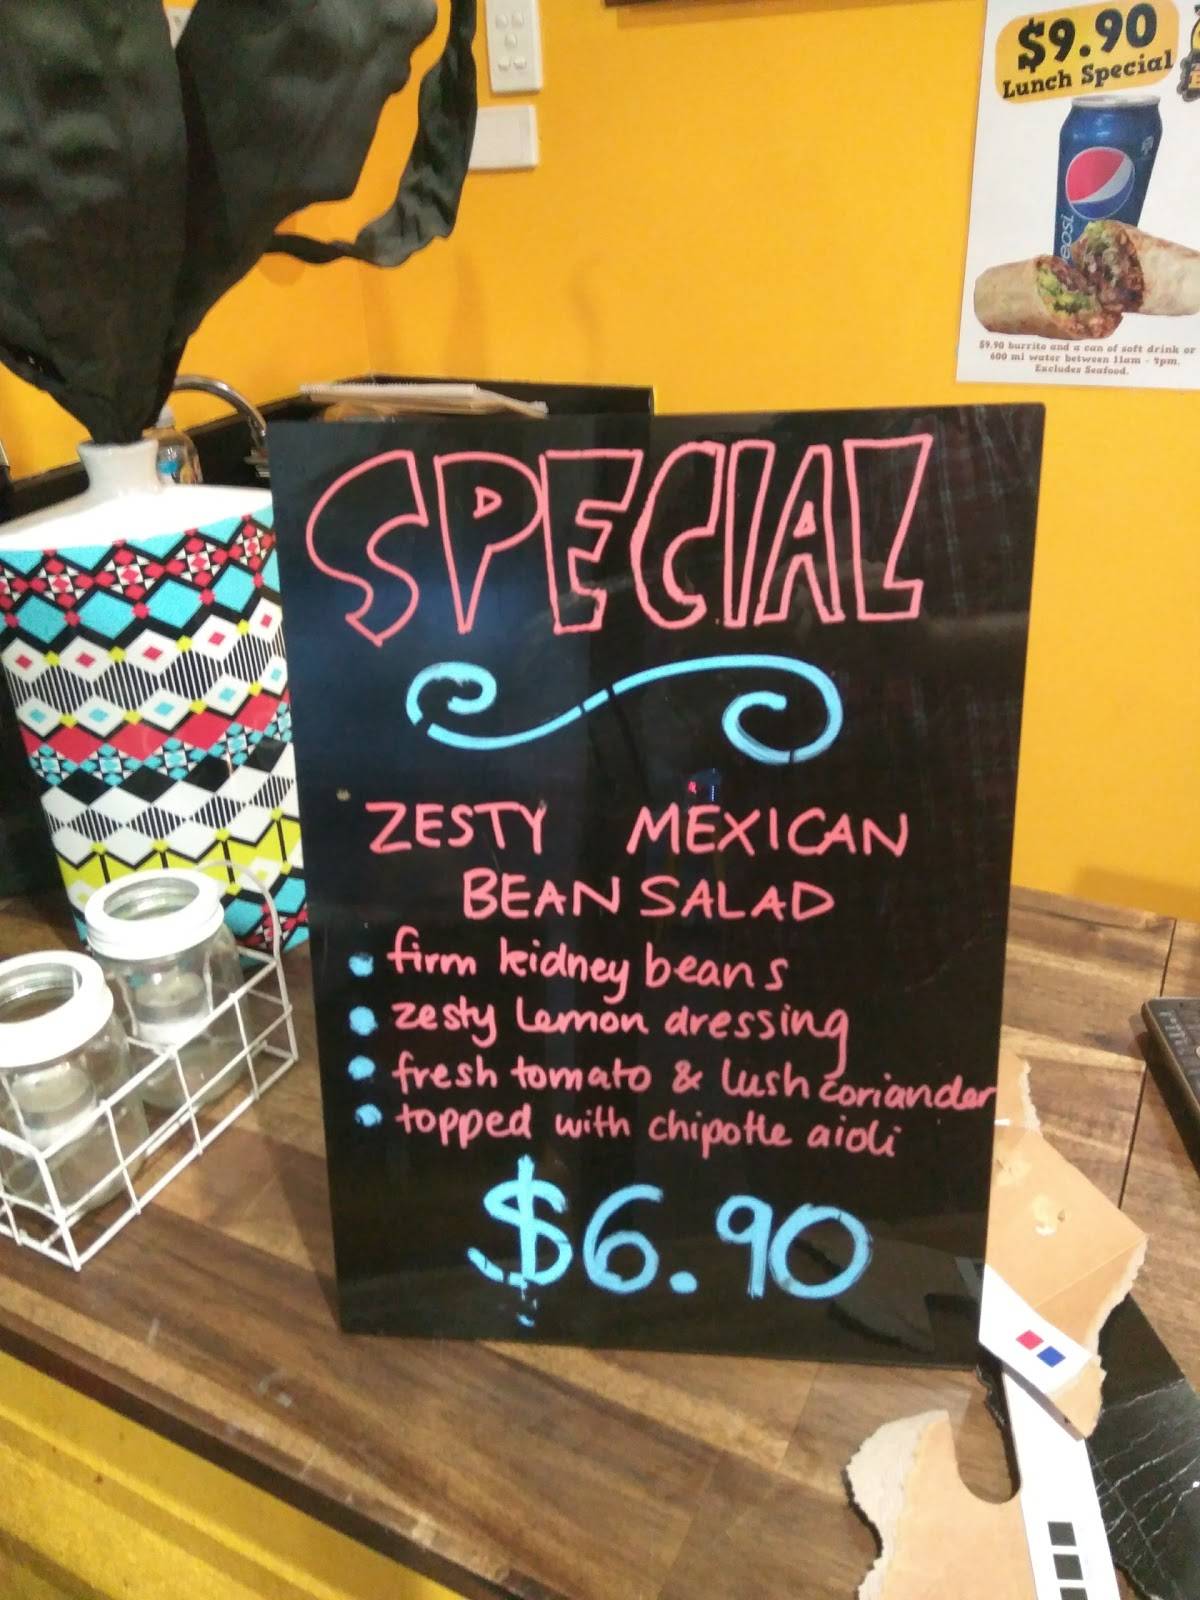 $9.90
Lunch Special
$9.90 burrito and a can of soft drink or
600 ml water between 11am - 4pm.
Excludes Seafood.
SPECIAL
ZESTY MEXICAN
BEAN SALAD
• firm kidney beans
• zesty lemon dressing
• fresh tomato & lush coriander
• topped with chipotle aioli
$6.90